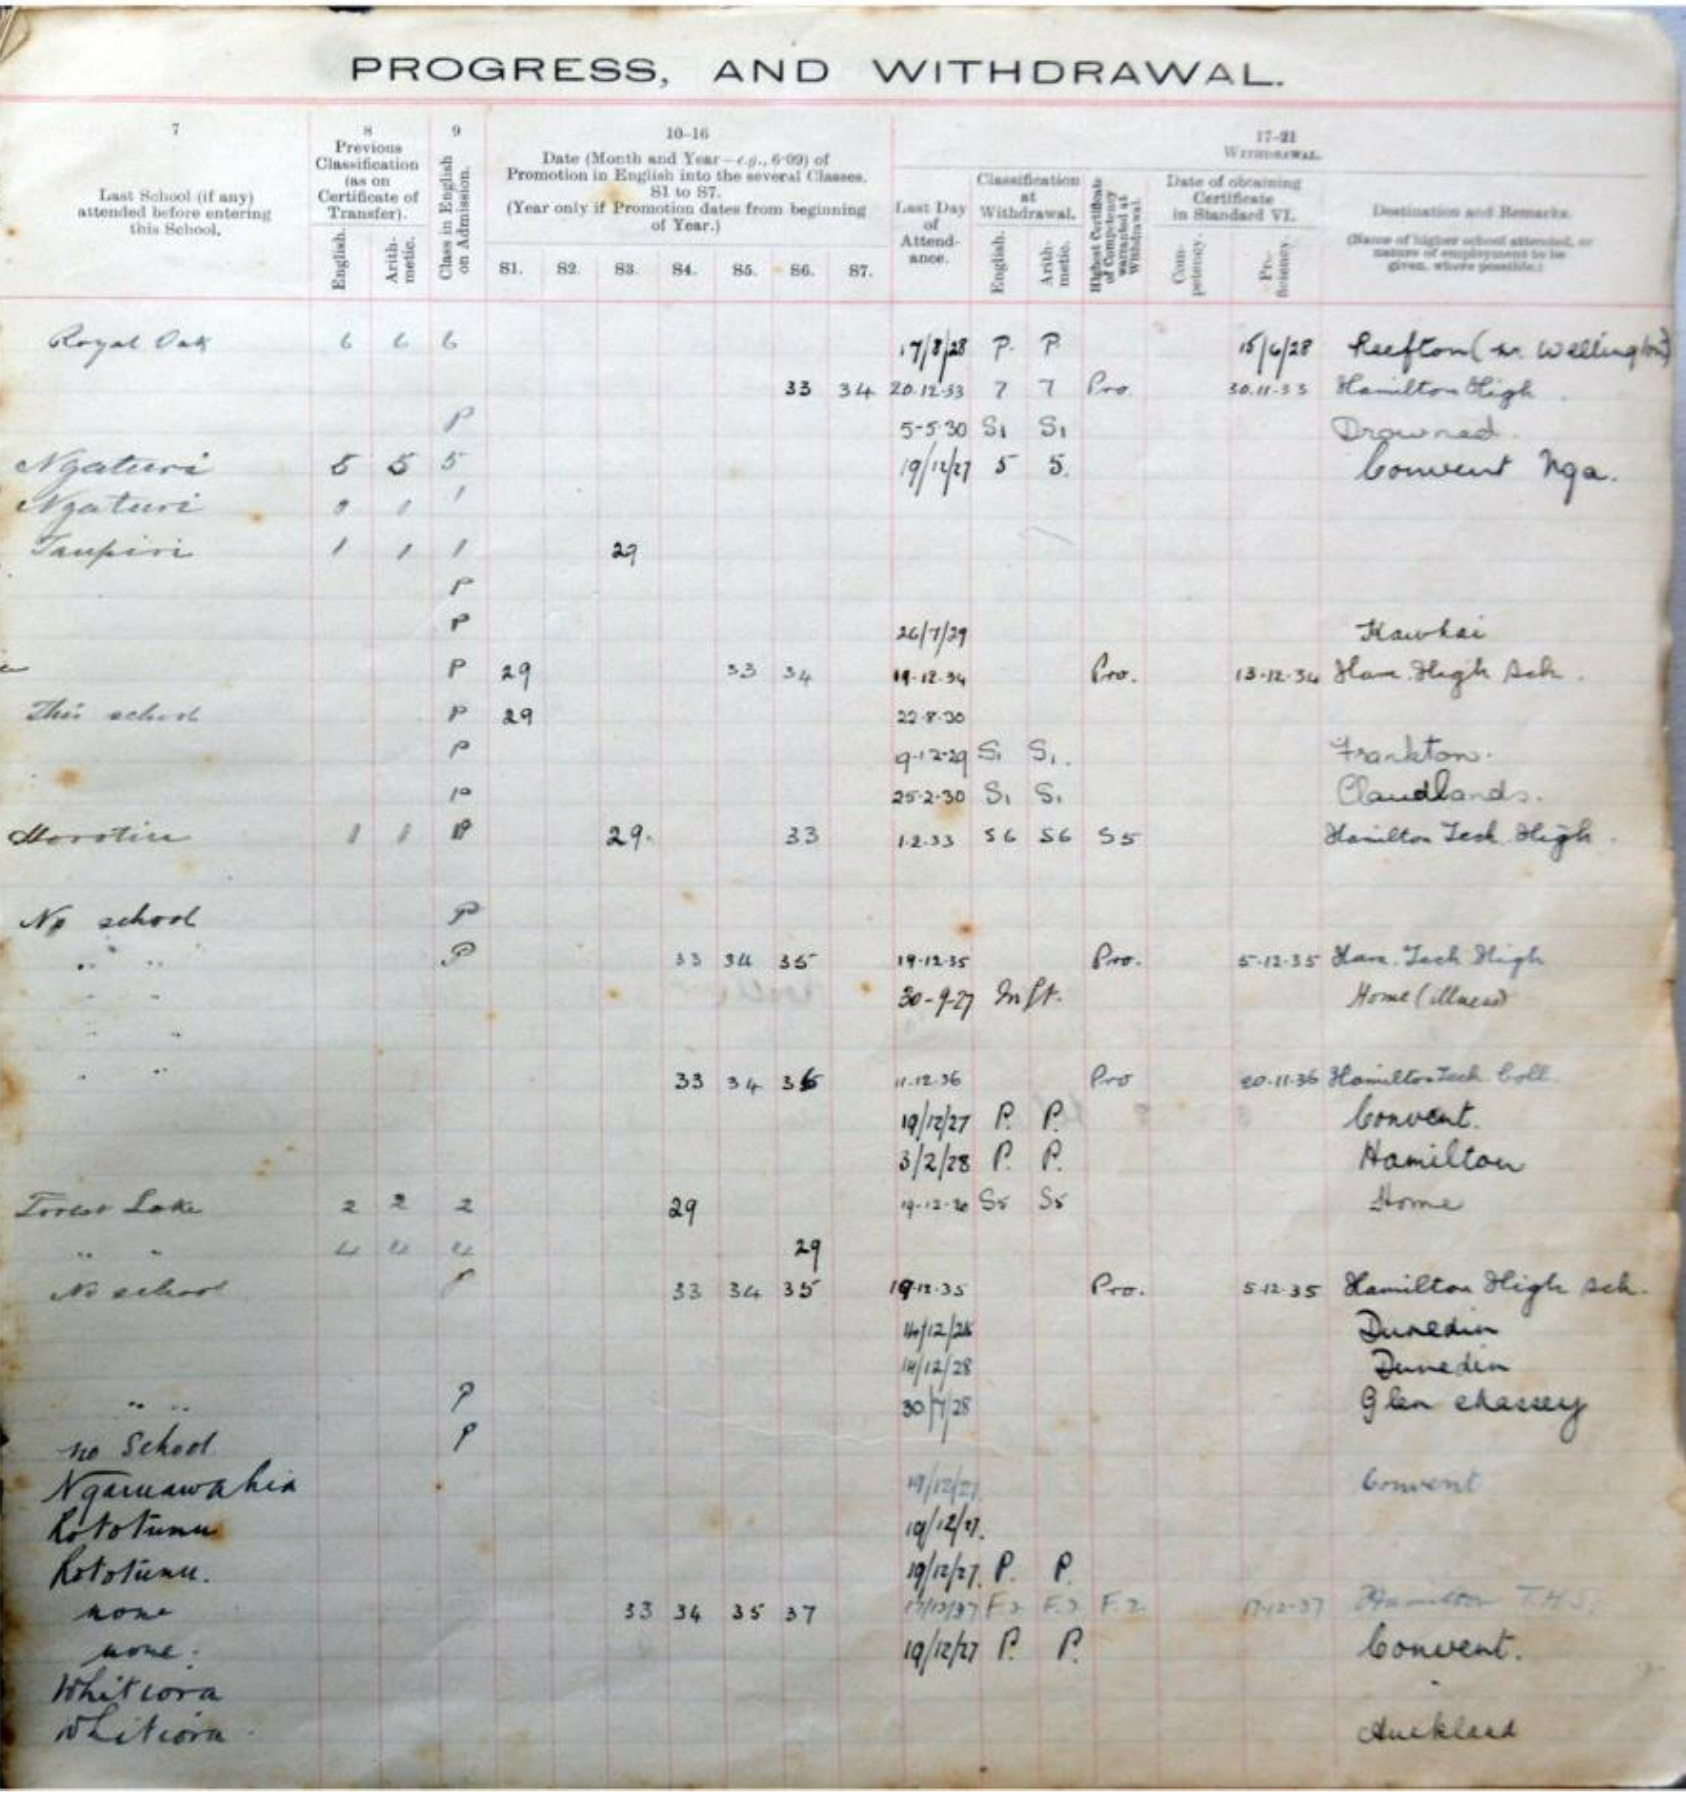 PROGRESS, AND WITHDRAWAL.
7 8 9 10–16 17–21
Last School (if any) attended before entering this School.
Previous Classification (as on Certificate of Transfer).
English. Arith-metic.
Class in English on Admission.
Date (Month and Year—e.g., 6·09) of Promotion in English into the several Classes. S1 to S7.
(Year only if Promotion dates from beginning of Year.)
S1. S2. S3. S4. S5. S6. S7.
WITHDRAWAL.
Last Day of Attend-ance.
Classification at Withdrawal.
English. Arith-metic.
Highest Certificate of Competency warranted at Withdrawal.
Date of obtaining Certificate in Standard VI.
Com-petency. Pro-ficiency.
Destination and Remarks.
(Name of higher school attended, or nature of employment to be given, where possible.)
Royal Oak 6 6 6 17/8/28 P. P. 15/6/28 Reefton (nr. Wellington)
33 34 20.12.33 7 7 Pro 30.11.33 Hamilton High
P 5-5-30 S1 S1 Drowned.
Ngaturi 5 5 5 19/12/27 5 5. Convent Nga.
Ngaturi 1 1
Taupiri 1 1 1 29
P
P 26/7/29 Kawhai
P 29 33 34 19-12-34 Pro. 13-12-34 Ham. High Sch.
This school P 29 22-8-30
P 9-12-29 S1 S1. Frankton.
P 25-2-30 S1 S1. Claudlands.
Horotiu 1 1 P 29. 33 1.2.33 S6 S6 S5 Hamilton Tech High.
No school P
" " P 33 34 35 19-12-35 Pro. 5-12-35 Ham. Tech High
" " 30-9-27 Inft. Home (illness)
" "
" " 33 34 36 11.12.36 Pro 20-11-36 Hamilton Tech Coll.
19/12/27 P. P. Convent.
3/2/28 P. P. Hamilton
Forest Lake 2 2 2 29 S5 S5 Home
" " 4 4 4 29
No school P 33 34 35 19-12-35 Pro. 5-12-35 Hamilton High Sch.
14/12/28 Dunedin
14/12/28 Dunedin
" " P 30/7/28 Glen Massey
no School P
Ngaruawahia 19/12/27. Convent
Rototunu 19/12/27.
Rototunu. 19/12/27. P. P.
none 33 34 35 37 17/12/37 F.2 F.2 F.2 17-12-37 Hamilton T.H.S.
none. 19/12/27 P. P. Convent.
Whitiora
Whitiora Auckland